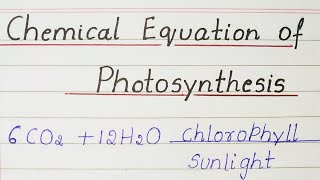 Chemical Equation of
Photosynthesis
6CO₂ + 12H₂O chlorophyll
sunlight